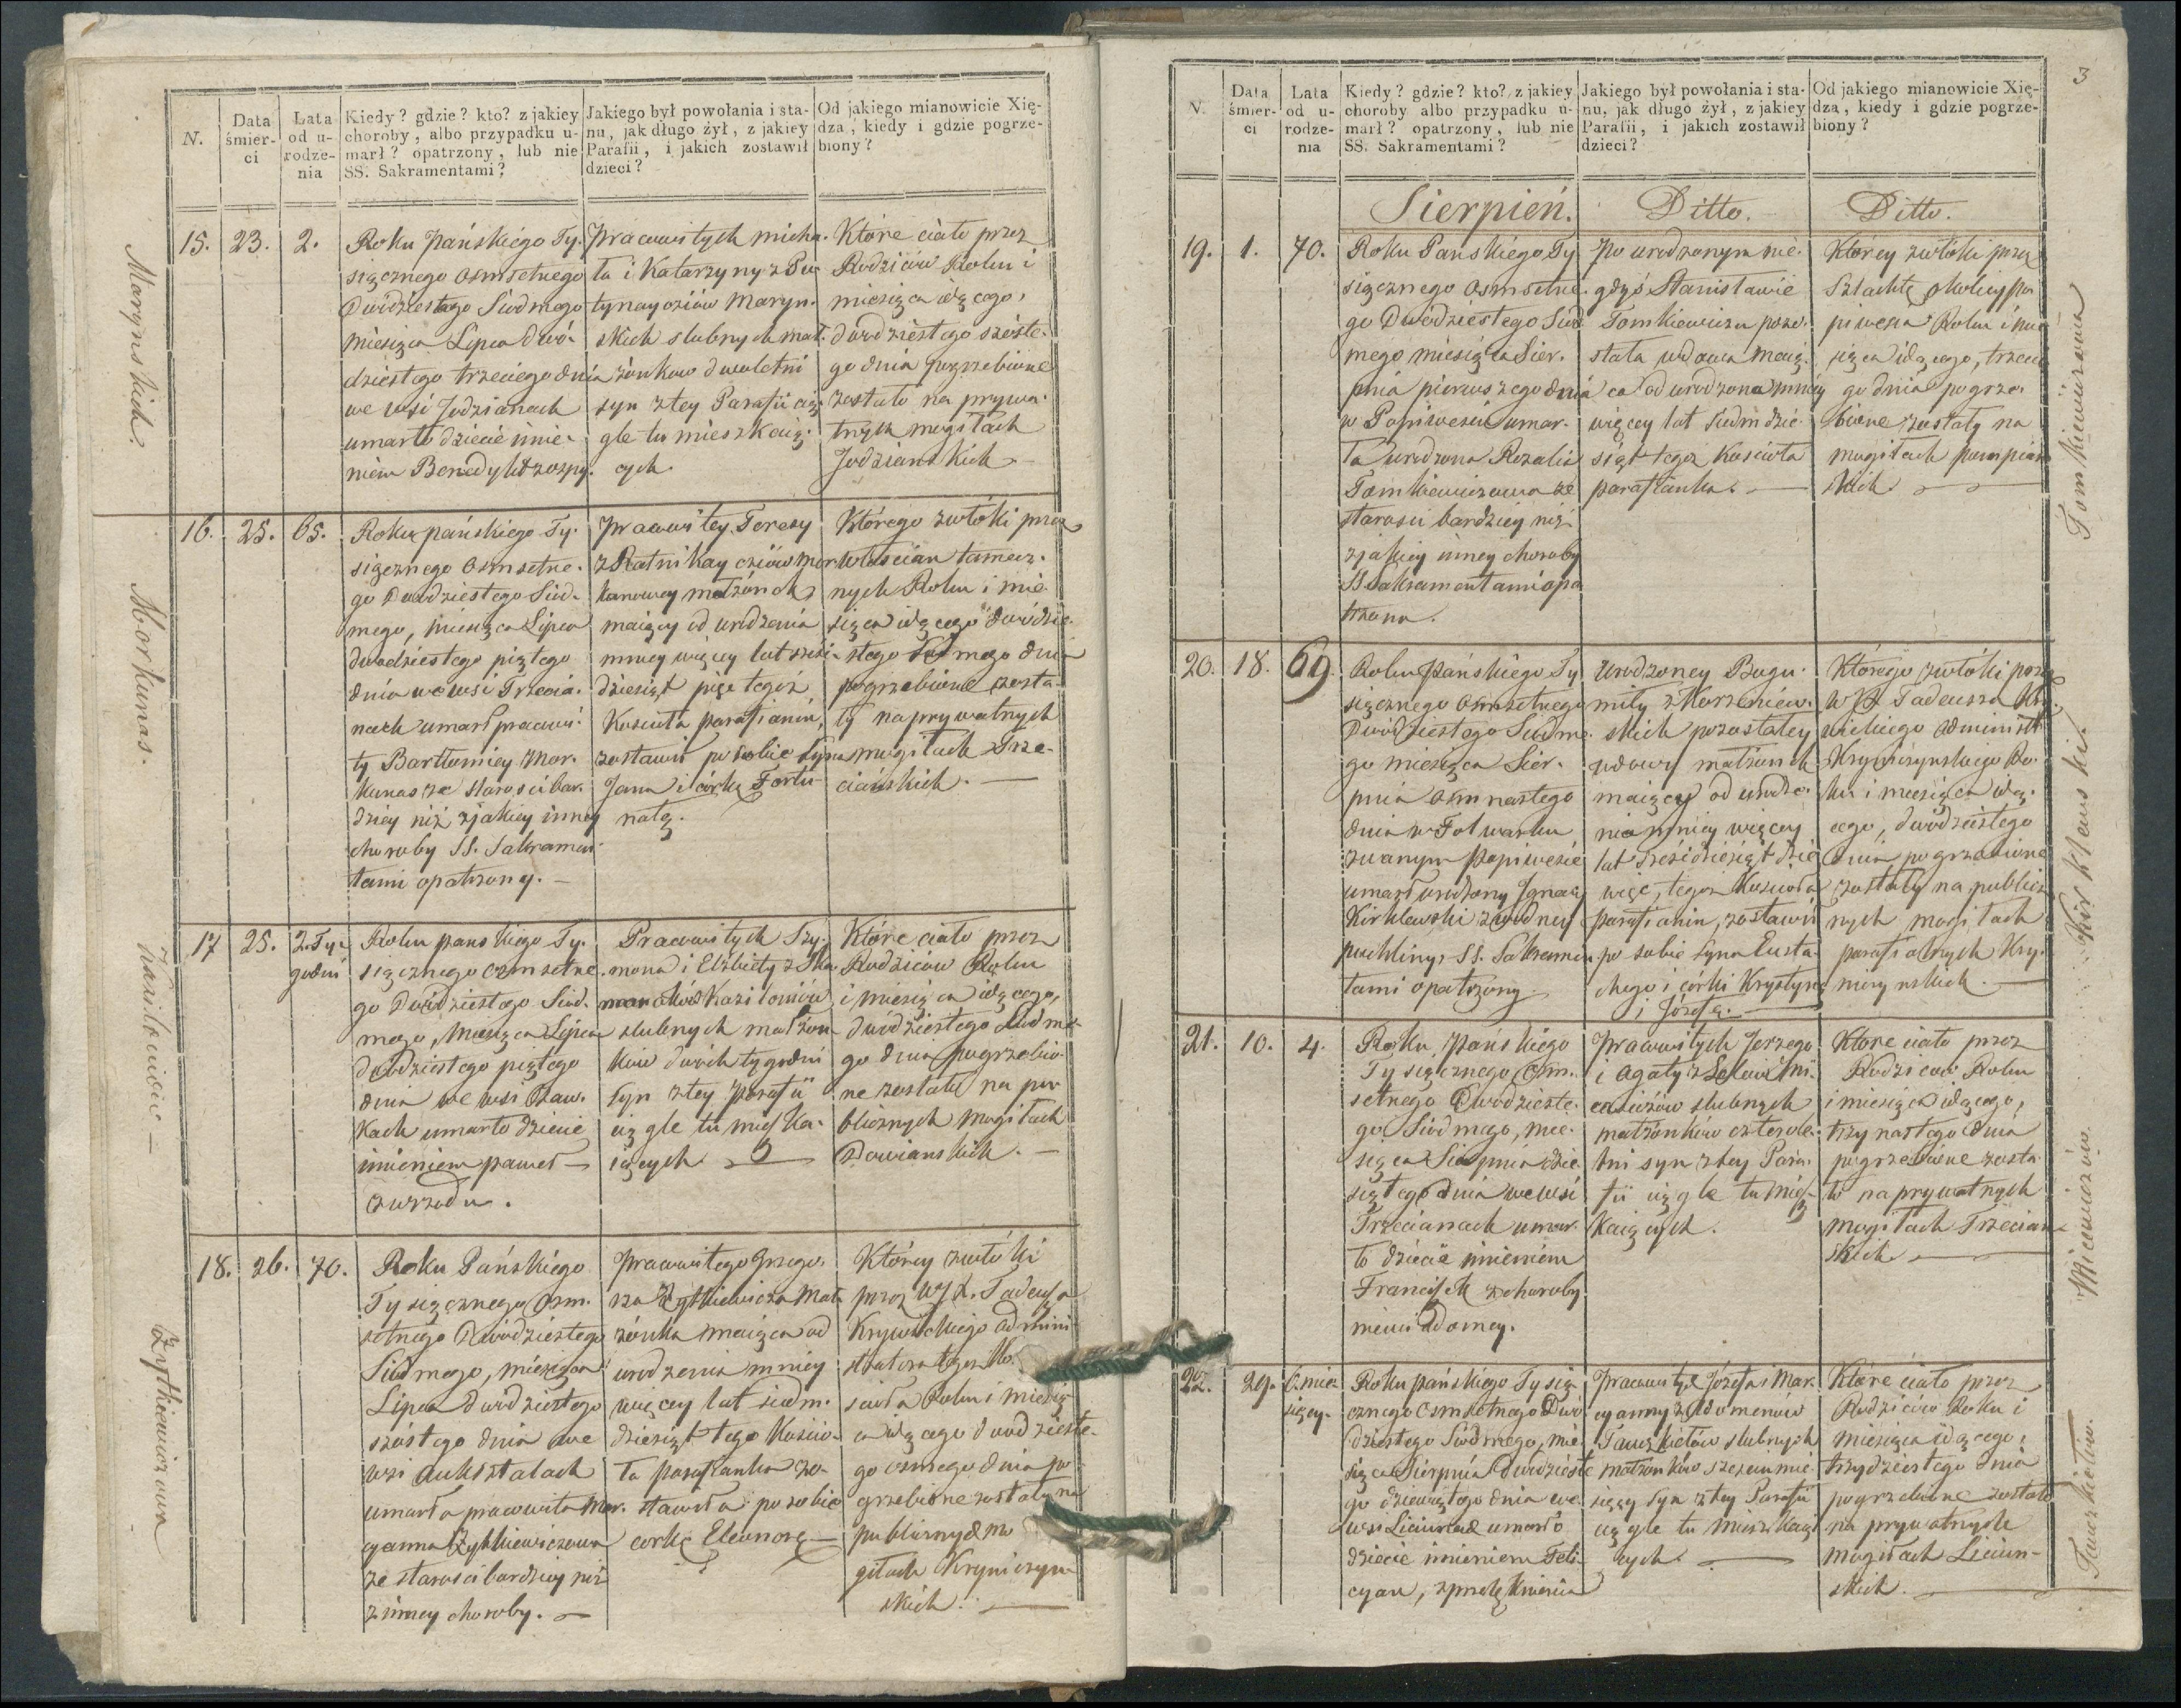 N.
Data śmierci
Lata od urodzenia
Kiedy? gdzie? kto? z jakiey
choroby, albo przypadku u-
marł? opatrzony, lub nie
SS. Sakramentami?
Jakiego był powołania i sta-
nu, jak długo żył, z jakiey
Parafii, i jakich zostawił
dzieci?
Od jakiego mianowicie Xię-
dza, kiedy i gdzie pogrze-
biony?
Marynskich.
15.
23.
2.
Roku Pańskiego Ty-
siącznego Osmsetnego
Dwódziestego Siodmego
miesiąca Lipca dwó-
dziestego trzeciego dnia
we wsi Jodzianach
umarło dziecie imie-
niem Benedykt
Pracowitych Micha-
ła i Katarzyny z
Maryn-
skich slubnych mał-
żonkow dwuletni
syn z tey Parafii cią-
gle tu mieszkaią-
cych.
Które ciało przez
Rodziców Roku i
miesiąca idącego,
dwodziestego szoste-
go dnia pogrzebione
zostało na prywa-
tnych mogiłach
Jodzianskich
Morkunas.
16.
25.
65.
Roku pańskiego Ty-
siącznego Osmsetne-
go Dwodziestego Siod-
mego, miesiąca Lipca
dwodziestego piątego
dnia we wsi Trzecia-
nach umarł pracowi-
ty Bartłomiey Mor-
kunas ze starosci bar-
dziey niż z jakiey inney
choroby SS. Sakramen-
tami opatrzony.
Pracowitey Teresy
z Ratnikay cziow Mor-
kunowey małżonek
maiący od urodzenia
mniey więcey lat sześć-
dziesiąt pięć tegoż
Kościoła parafianin,
zostawił po sobie syna
Jana i córkę Fortu-
natę.
Którego zwłóki przez
włoscian tamecz-
nych Roku i mie-
siąca idącego dwódzie-
stego siodmego dnia
pogrzebione zosta-
ły na prywatnych
mogiłach Trze-
ciańskich.
17
25.
2. Ty-
godni
Roku pańskiego Ty-
siącznego osmsetne-
go Dwódziestego Siod-
mego, Miesiąca Lipca
dwodziestego piątego
dnia we wsi
umarło dziecie
imieniem paweł
z wrzodu.
Pracowitych Szy-
mona i Elżbiety z
slubnych małżon-
ków dwóch tygodni
syn z tey Parafii
ciągle tu mieszka-
iących
Które ciało przez
Rodziców Roku
i miesiąca idącego,
dwódziestego siodme-
go dnia pogrzebio-
ne zostało na pu-
blicznych mogiłach
Dowianskich.
Żytkiewiczowa
18.
26.
70.
Roku Pańskiego
Tysiącznego Osm-
setnego Dwódziestego
Siodmego, miesiąca
Lipca dwódziestego
szóstego dnia we
wsi Aukszłalach
umarła pracowita Mar-
cyanna Żytkiewiczowa
ze starosci bardziey niż
z inney choroby.
Pracowitego Grzego-
rza Żytkiewicza Mał-
żonka maiąca od
urodzenia mniey
więcey lat siedm-
dziesiąt tego Kościo-
ła parafianka zo-
stawiła po sobie
corkę Eleonorę
Którey zwłóki
przez WJX. Tadeusza
Krywickiego admini-
stratora tegoż Ko-
scioła Roku i miesią-
ca idącego dwodzieste-
go osmego dnia po-
grzebione zostały na
publicznych mo-
giłach Kryniczyn-
skich.
3
N.
Data śmierci
Lata od urodzenia
Kiedy? gdzie? kto? z jakiey
choroby albo przypadku u-
marł? opatrzony, lub nie
SS. Sakramentami?
Jakiego był powołania i sta-
nu, jak długo żył, z jakiey
Parafii, i jakich zostawił
dzieci?
Od jakiego mianowicie Xię-
dza, kiedy i gdzie pogrze-
biony?
Sierpień.
Ditto.
Ditto.
19.
1.
70.
Roku Pańskiego Ty-
siącznego Osmsetne-
go Dwodziestego Siod-
mego miesiąca Sier-
pnia pierwszego dnia
w Popiwesiu umar-
ła urodzona Rozalia
Tomkiewiczowa ze
starosci bardziey niż
z jakiey inney choroby
SS Sakramentami opa
trzona.
Po urodzonym nie-
gdyś Stanisławie
Tomkiewiczu pozo-
stała wdowa maią-
ca od urodzona mniey
więcey lat siedmdzie-
siąt tegoż Kościoła
parafianka.
Którey zwłóki przez
Szlachtę okolicy po-
piwesia Roku i mie-
siąca idącego, trzecie-
go dnia pogrze-
bione zostały na
mogiłach
skich
Tomkiewiczowa
20.
18.
69.
Roku Pańskiego Ty
siącznego Osmsetnego
Dwódziestego Siodme-
go miesiąca Sier-
pnia Osmnastego
dnia w Folwarku
zwanym Popiwesie
umarł urodzony Ignacy
Kirklewski z wodney
puchliny, SS. Sakramen-
tami opatrzony.
Urodzoney Bogu-
miły z Korzeniew-
skich pozostałey
wdowy małżonek
maiący od urodze-
nia mniey więcey
lat sześćdziesiąt dzie
więć, tegoż Kościoła
parafianin, zostawił
po sobie syna Eusta-
chego i córki Krystynę
i Józefę.
Którego zwłóki przez
WJX Tadeusza Kry-
wickiego Administr.
Kryniczynskiego Ro-
ku i miesiąca idą-
cego, dwodziestego
dnia pogrzebione
zostały na publicz-
nych mogiłach
parafialnych Kry-
niczynskich.
21.
10.
4.
Roku Pańskiego
Tysiącznego Osm-
setnego Dwódzieste-
go Siodmego, mie-
siąca Sierpnia dzie-
siątego dnia we wsi
Trzecianach umar-
ło dziecie imieniem
Franciszek z choroby
niewiadomey.
Pracowitych Jerzego
i Agaty z
slubnych
małżonków cztérole-
tni syn z tey Para-
fii ciągle tu miesz-
kaiących.
Ktore ciało przez
Rodzicow Roku
i miesiąca idącego,
trzynastego dnia
pogrzebione zosta-
ło na prywatnych
mogiłach Trzecian-
skich
22.
29.
6. mie-
sięcy.
Roku pańskiego Tysią-
cznego Osmsetnego Dwó-
dziestego Siódmego, mie-
siąca Sierpnia dwódzieste
go dziewiątego dnia we
wsi Liciunach umarło
dziecie imieniem Feli-
cyan,
Pracowitych Józefa i Mar-
cyanny z Adomenów
slubnych
małżonków sześciu mie-
sięcy syn z tey Parafii
ciągle tu mieszkaią-
cych.
Które ciało przez
Rodziców Roku i
miesiąca idącego,
trzydziestego dnia
pogrzebione zostało
na prywatnych
mogiłach Liciun-
skich.